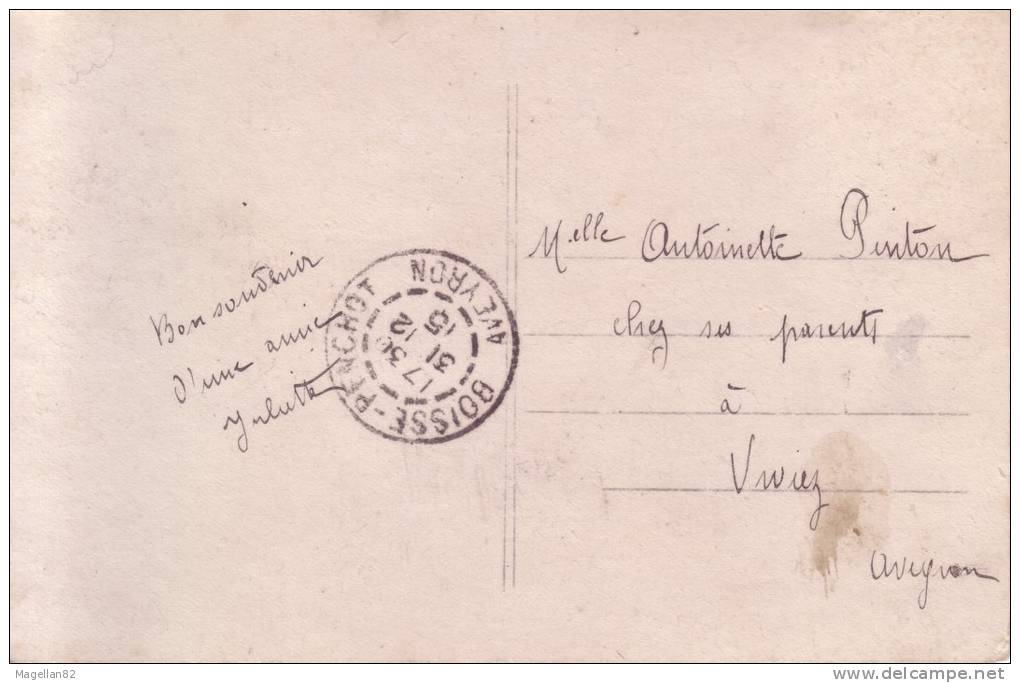 Bon souvenir
d'une amie
Juliette
BOISSE-PENCHOT
AVEYRON
17 30
31 12
15
Melle Antoinette Pinton
chez ses parents
à
Viviez
Aveyron
Magellan82
delcampe.net